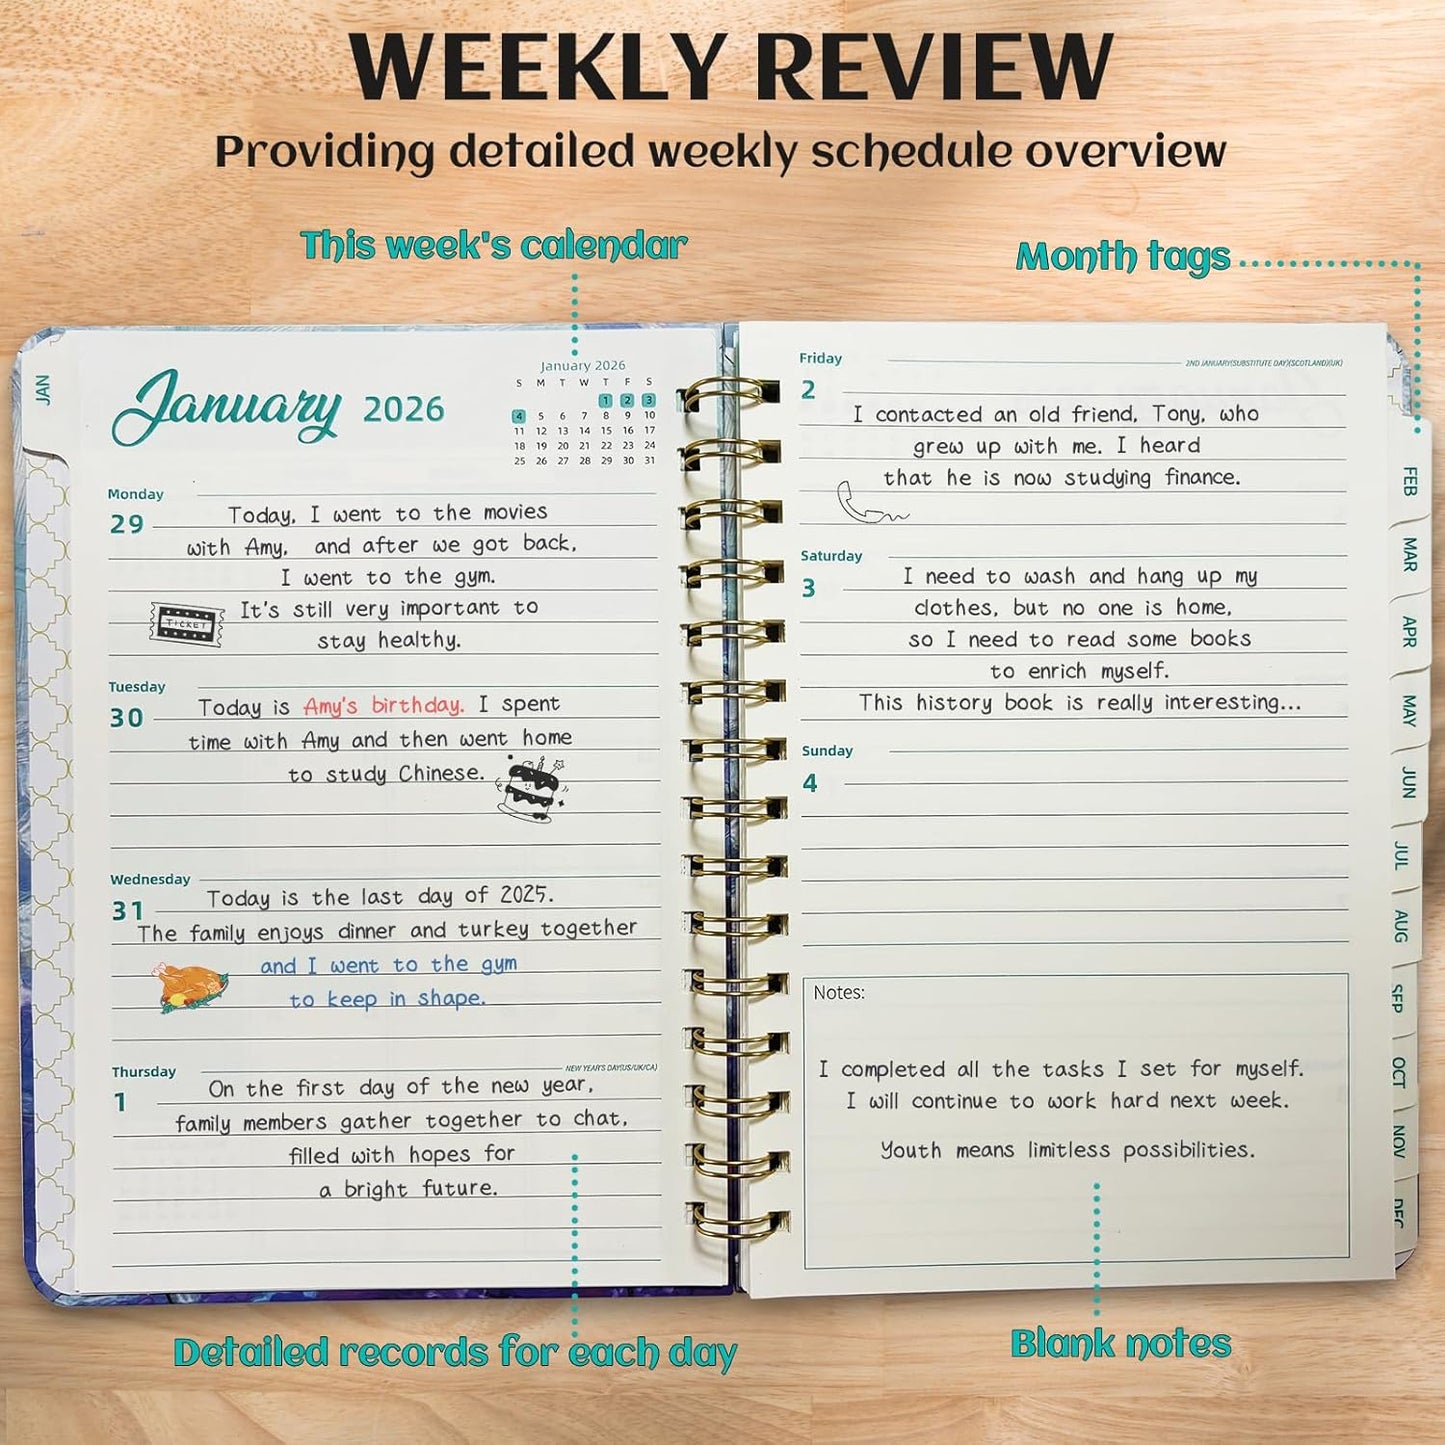 WEEKLY REVIEW
Providing detailed weekly schedule overview
This week's calendar
Month tags
JAN
January 2026
January 2026
S M T W T F S
1 2 3
4 5 6 7 8 9 10
11 12 13 14 15 16 17
18 19 20 21 22 23 24
25 26 27 28 29 30 31
Monday
29
Today, I went to the movies
with Amy, and after we got back,
I went to the gym.
It's still very important to
stay healthy.
TICKET
Tuesday
30
Today is Amy's birthday. I spent
time with Amy and then went home
to study Chinese.
Wednesday
31
Today is the last day of 2025.
The family enjoys dinner and turkey together
and I went to the gym
to keep in shape.
Thursday
NEW YEAR'S DAY(US/UK/CA)
1
On the first day of the new year,
family members gather together to chat,
filled with hopes for
a bright future.
Friday
2ND JANUARY(SUBSTITUTE DAY)(SCOTLAND)(UK)
2
I contacted an old friend, Tony, who
grew up with me. I heard
that he is now studying finance.
Saturday
3
I need to wash and hang up my
clothes, but no one is home,
so I need to read some books
to enrich myself.
This history book is really interesting...
Sunday
4
Notes:
I completed all the tasks I set for myself.
I will continue to work hard next week.
Youth means limitless possibilities.
FEB
MAR
APR
MAY
JUN
JUL
AUG
SEP
OCT
NOV
DEC
Detailed records for each day
Blank notes